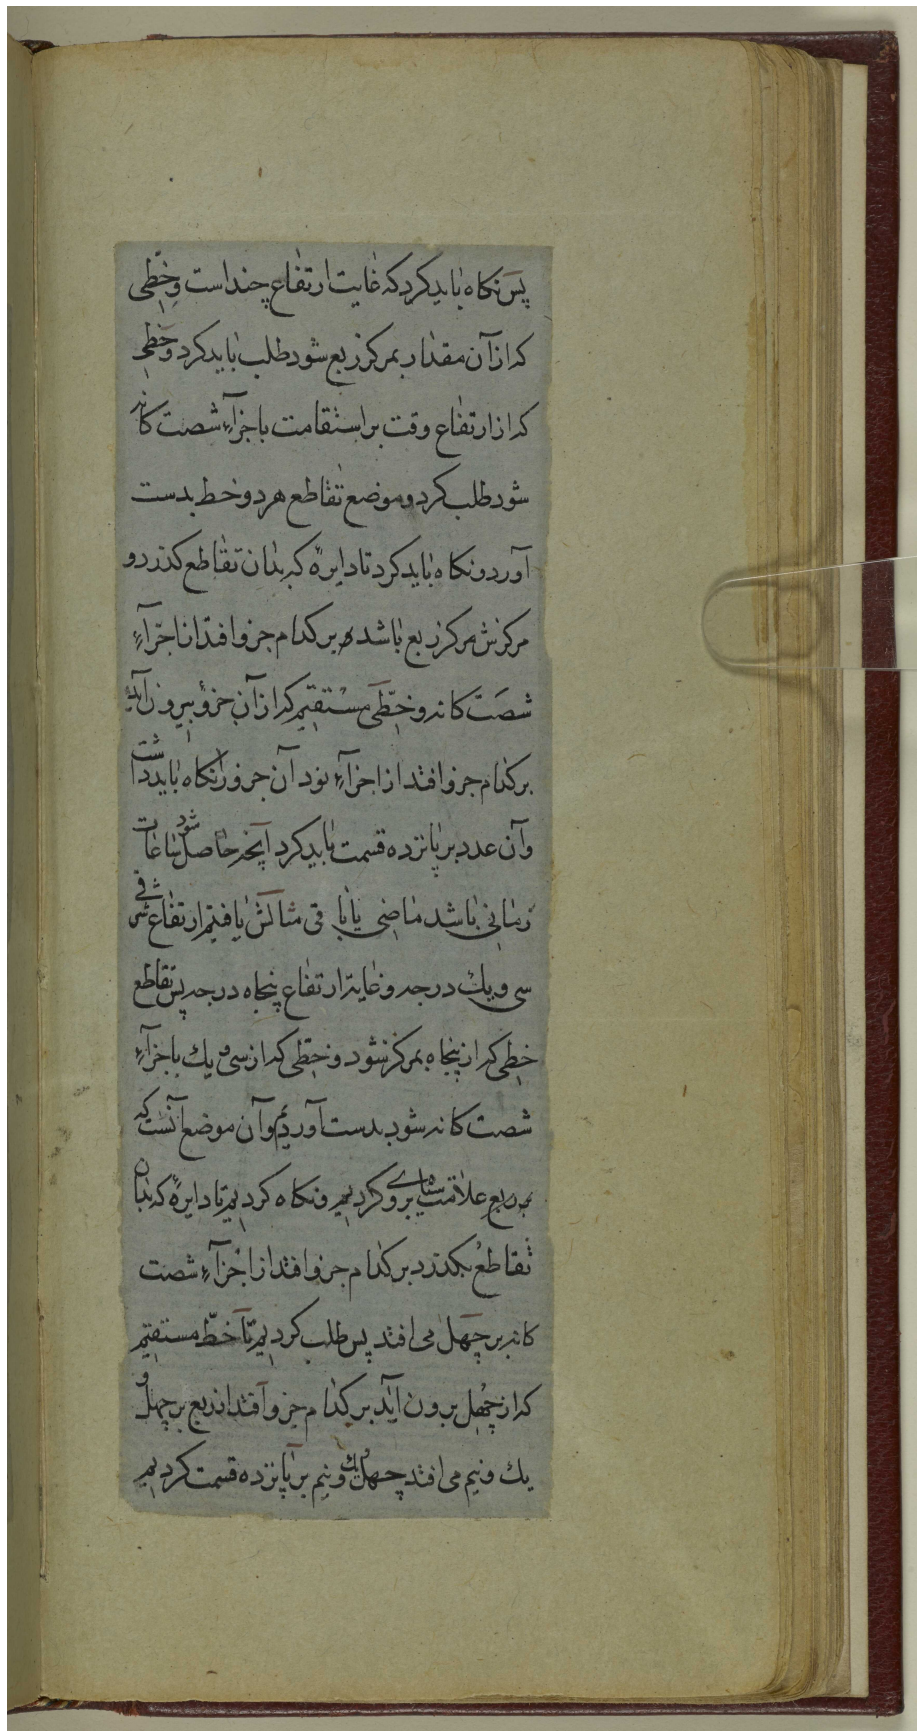 پس نکاه باید کرد که غایت ارتفاع چند است و خطّی
که از آن مقدار بمرکز ربع شود طلب باید کرد و خطی
که از ارتفاع وقت بر استقامت باجزآءِ شصت کانه
شود طلب کرد و موضع تقاطع هر دو خط بدست
آورد و نکاه باید کرد تا دایرهٔ که بدان تقاطع کذرد و
مرکزش مرکز ربع باشد بر کدام جزو افتد از اجزآءِ
شصت کانه و خطّی مستقیم که از آن جزو بیرون آید
بر کدام جزو افتد از اجزآءِ نود آن جزو را نکاه باید داشت
و آن عدد بر پانزده قسمت باید کرد آنچه حاصل شود ساعات
زمانی باشد ماضی یا باقی مثالش یافتیم ارتفاع شرقی
سی و یک درجه و غایة ارتفاع پنجاه درجه پس تقاطع
خطی که از پنجاه بمرکز شود و خطّی که از سی و یک باجزآءِ
شصت کانه شود بدست آوردیم و آن موضع آنست که
بر ربع علامت سیاهی برو کردیم و نکاه کردیم تا دایرهٔ که بدان
تقاطع بکذرد بر کدام جزو افتد از اجزآءِ شصت
کانه بر چهل می افتد پس طلب کردیم تا خطّ مستقیم
که از چهل برون آید بر کدام جزو افتد از ربع بر چهل و
یک و نیم می افتد چهل و یک و نیم بر پانزده قسمت کردیم